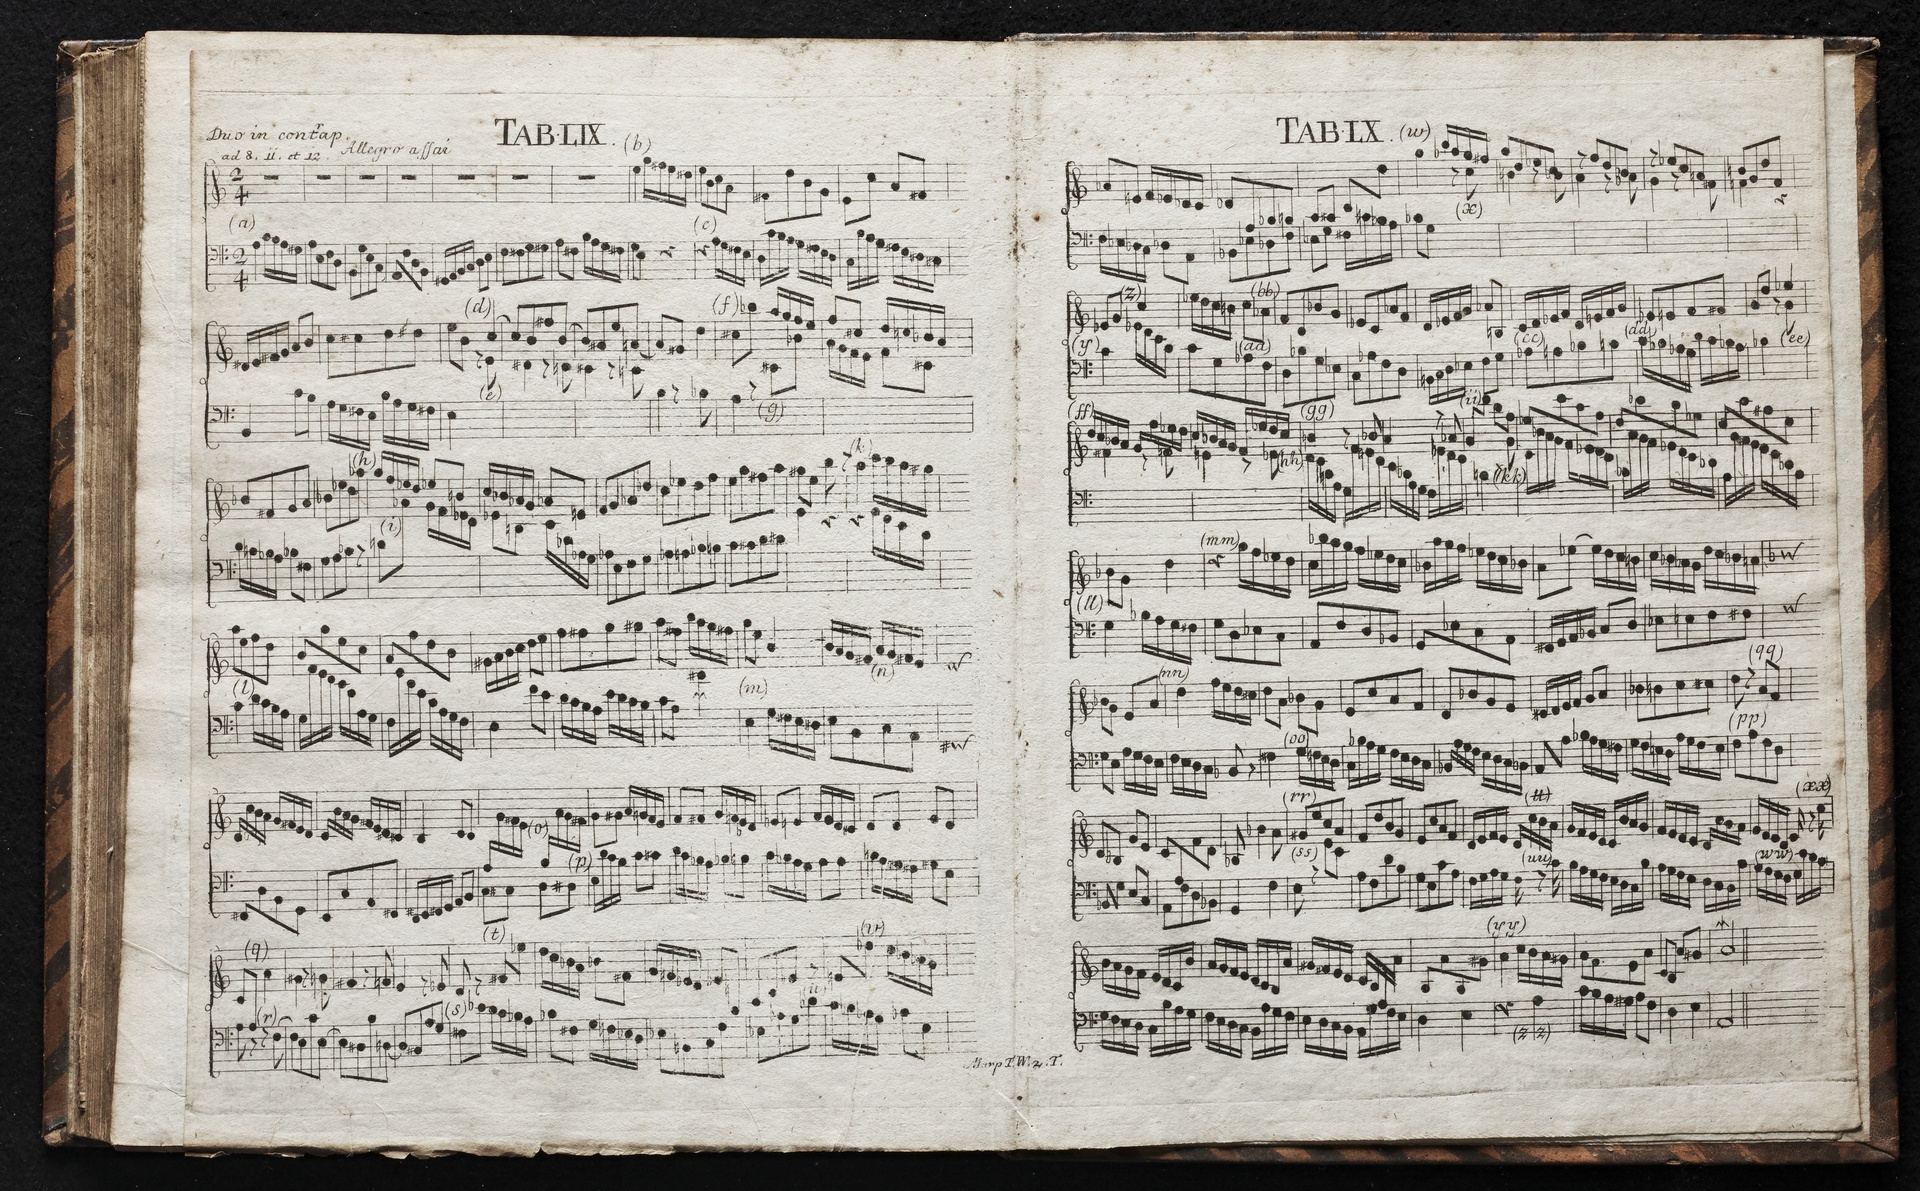 TAB·LIX.
Duo in contrap.
ad 8. 11. et 12. Allegro assai
(b)
2 4
(a)
(c)
2 4
(d)
(f)
(e)
(g)
(h)
(k)
(i)
(l)
(m)
(n)
(o)
(p)
(q)
(t)
(v)
(r)
(s)
(u)
TAB·LX.
(w)
(x)
(z)
(bb)
(y)
(aa)
(cc)
(dd)
(ee)
(ff)
(gg)
(ii)
(hh)
(kk)
(mm)
(ll)
(nn)
(qq)
(oo)
(pp)
(rr)
(tt)
(xx)
(ss)
(uu)
(ww)
(yy)
(zz)